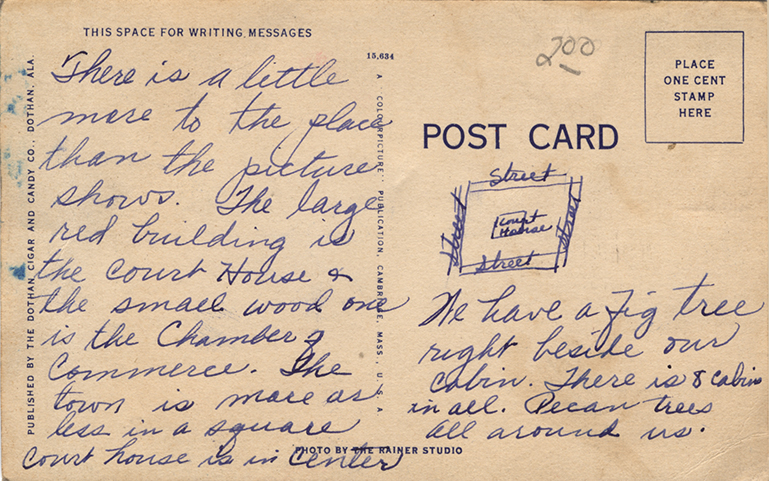 THIS SPACE FOR WRITING MESSAGES
There is a little
more to the place
than the picture
shows. The large
red building is
the Court House &
the small wood one
is the Chamber of
Commerce. The
town is more as
less in a square
Court house is in Center
PUBLISHED BY THE DOTHAN CIGAR AND CANDY CO., DOTHAN, ALA.
15,634
A COLOURPICTURE PUBLICATION, CAMBRIDGE, MASS., U.S.A
PHOTO BY THE RAINER STUDIO
200
PLACE
ONE CENT
STAMP
HERE
POST CARD
Street
Street
Court
House
Street
Street
We have a fig tree
right beside our
Cabin. There is 8 cabin
in all. Pecan trees
all around us.